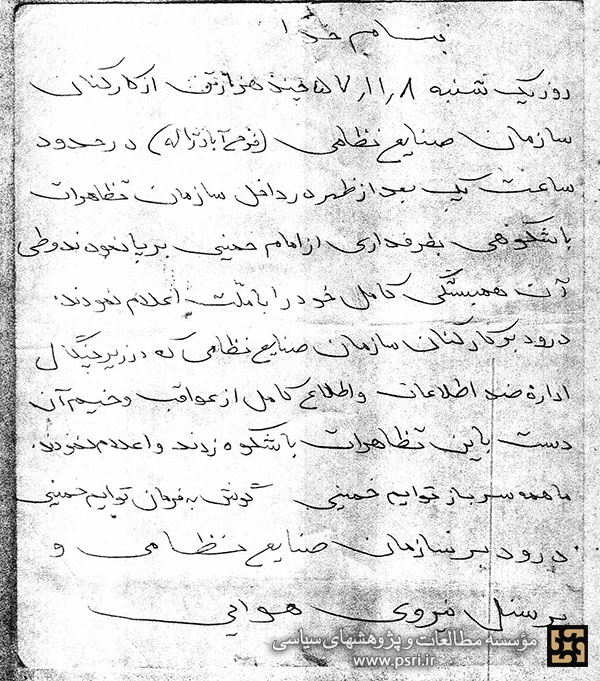 بنام خدا
روز یک شنبه ۵۷,۱۱,۸ چند هزار تن از کارکنان
سازمان صنایع نظامی () در حدود
ساعت یک بعد از ظهر در داخل سازمان تظاهرات
باشکوهی بطرفداری از امام خمینی بر پا نمودند و طی
آن همبستگی کامل خود را با ملت اعلام نمودند.
درود بر کارکنان سازمان صنایع نظامی که در زیر چنگال
اداره ضد اطلاعات و اطلاع کامل از عواقب وخیم آن
دست باین تظاهرات باشکوه زدند و اعلام نمودند.
ما همه سرباز توایم خمینی گوش به فرمان توایم خمینی
درود بر سازمان صنایع نظامی و
پرسنل نیروی هوایی
مؤسسه مطالعات و پژوهشهای سیاسی
www.psri.ir